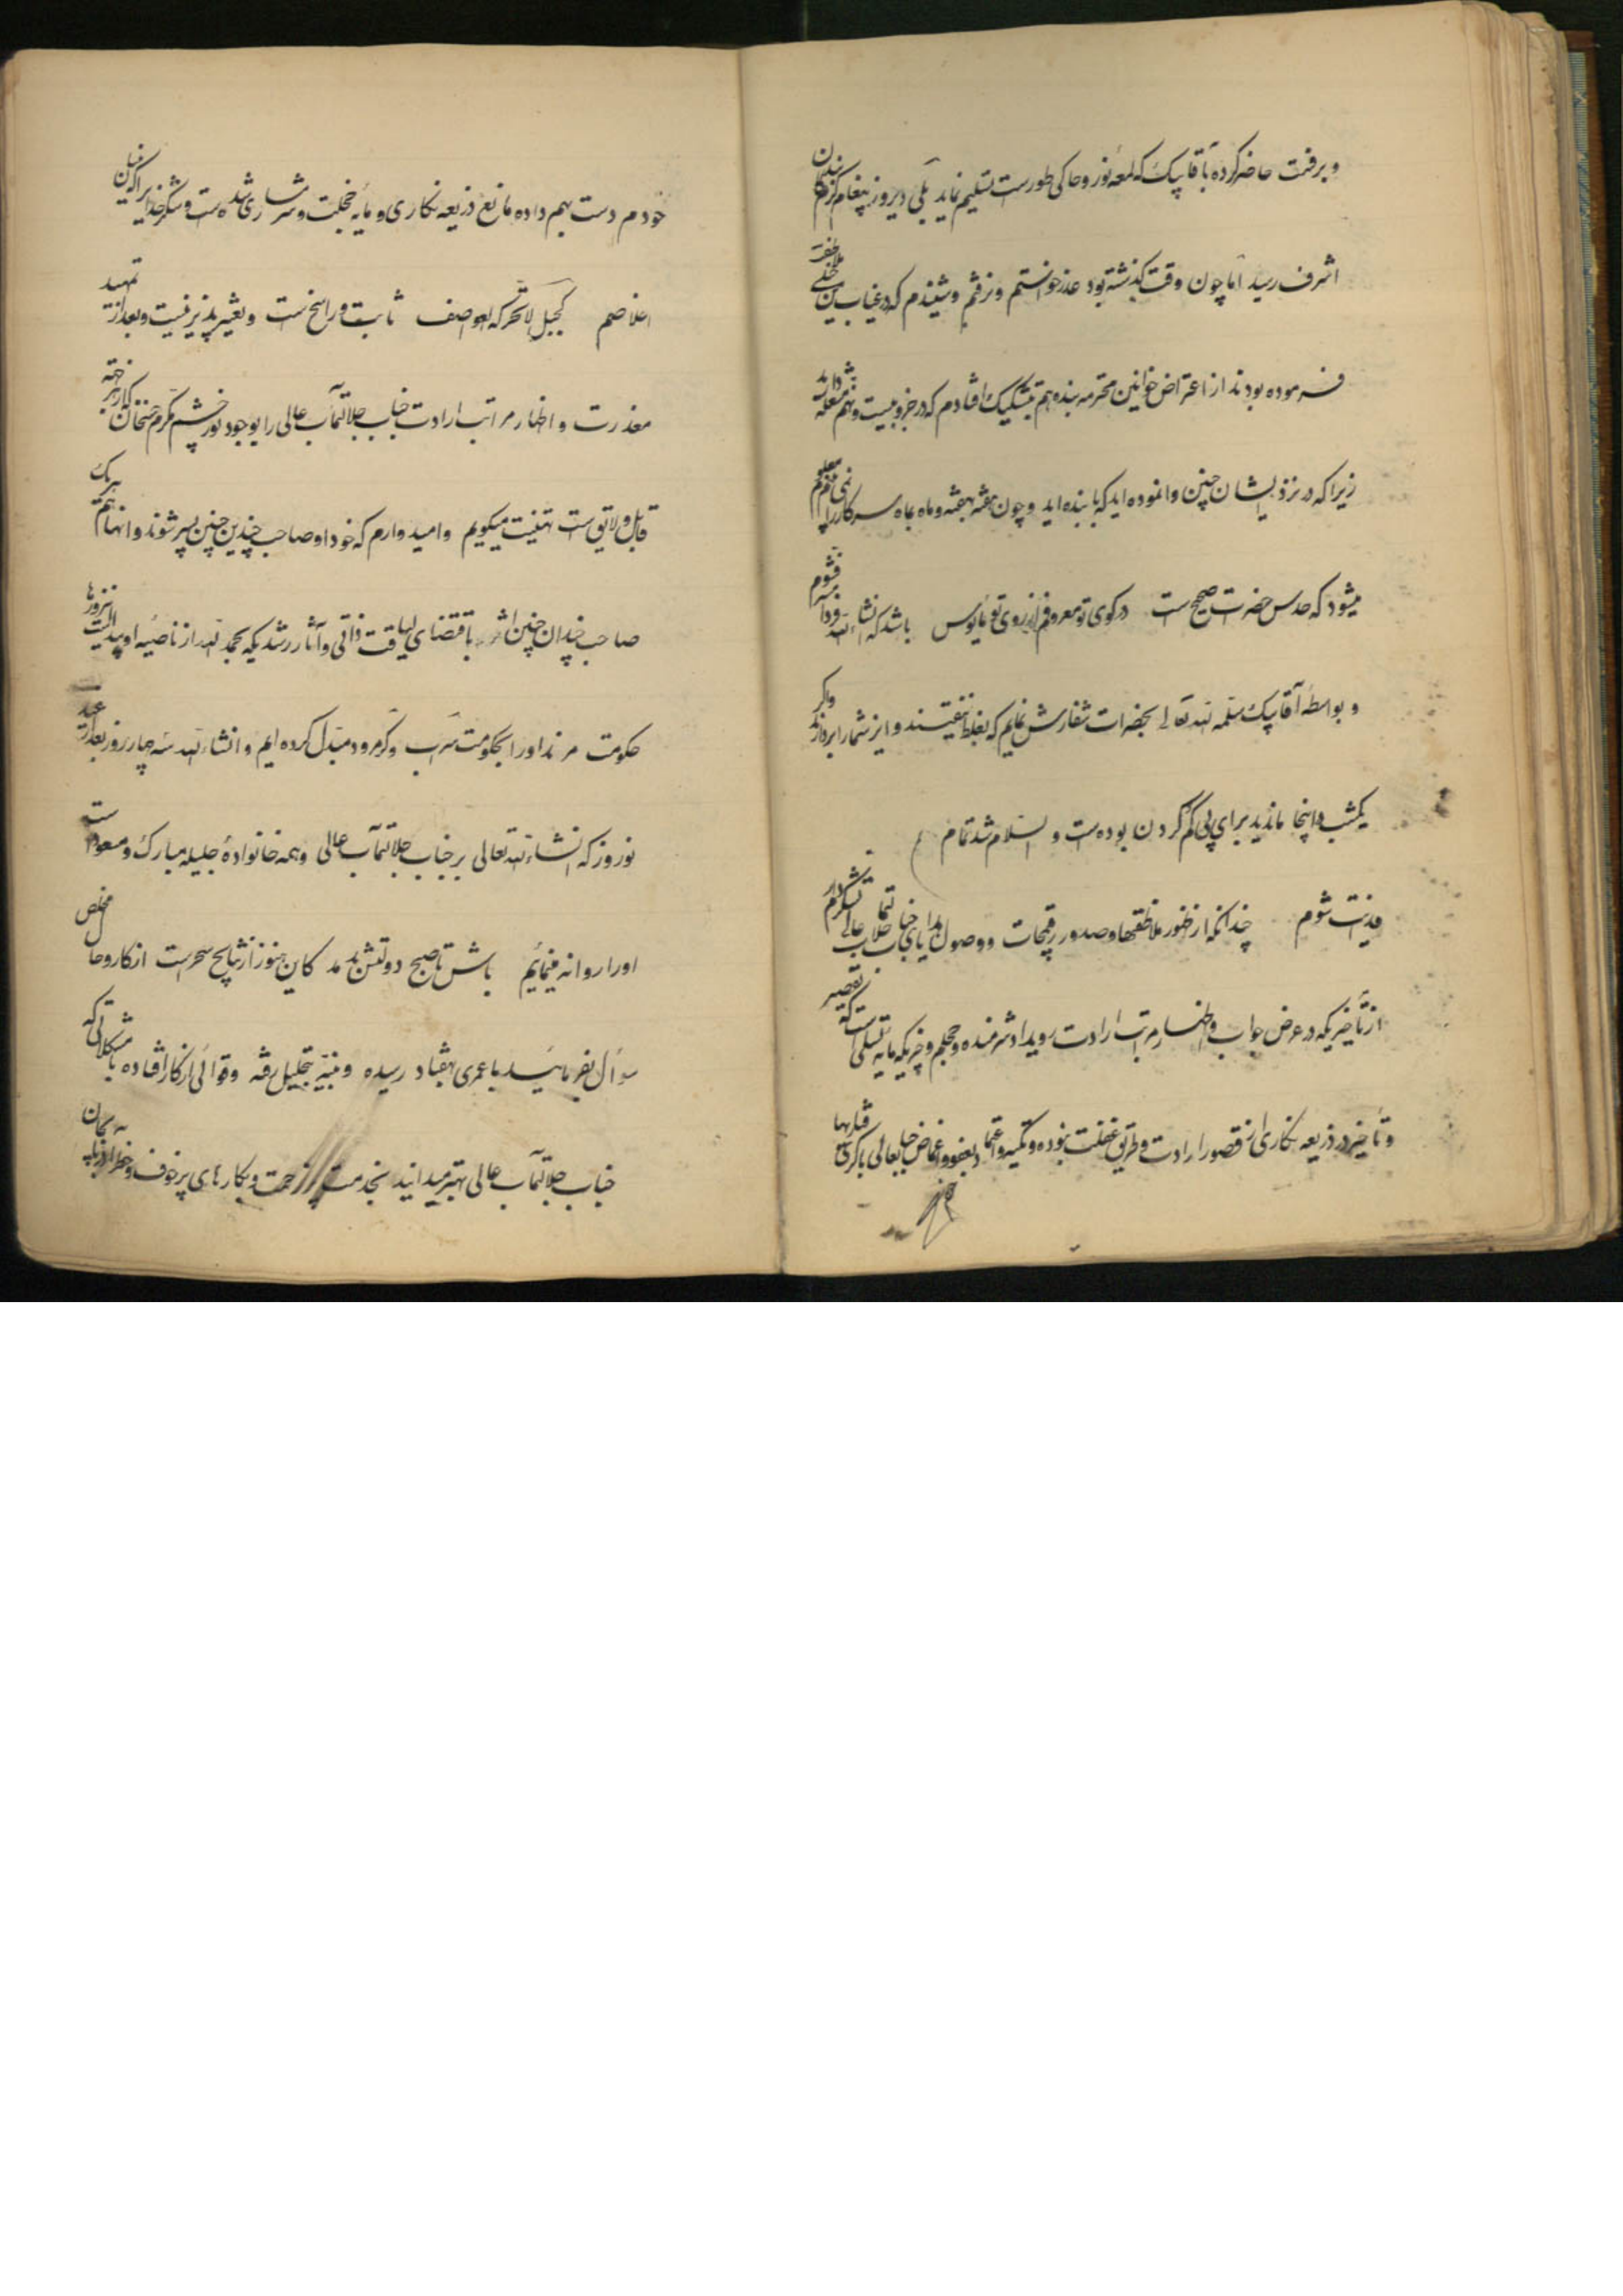 و برفت حاضر کرده بآقا پیک که لمعهٔ نور و حاکی طورست تسلیم نماید بلی دیروز پیغام کرم بندگان
اشرف رسید اما چون وقت گذشته بود عذر خواستم و نرفتم و شنیدم که در غیاب من خیلی ملاطفت
فرموده بودند از اعتراض خواتین محترمه بنده هم بتشکیک افتادم که در جزو بیست و نهم
زیرا که در نزد ایشان چنین وانموده اید که با بنده اید و چون هفته بهفته و ماه بماه سرکار را نمی بینم معلوم
میشود که حدس حضرات صحیح است در کوی تو معروفم و از روی تو مایوس باشد که انشاءالله فردا
و بواسطهٔ آقا پیک سلمه الله تعالی بحضرات سفارش نمایم که بغلط نیفتند و ازین شما را ابرا نمایند و اگر
یکشب در اینجا ماندید برای پی گم کردن بوده است و السلام شد تمام
فدیت شوم چندانکه از ظهور ملاطفتها و صدور رقیمجات و وصول هدایای جناب جلالتمآب عالی تشکر دارم
از تأخیریکه در عرض جواب و اظهار مراتب ارادت رویداد شرمنده و خجلم و چیزیکه مایه تسلی است که تقصیر
و تأخیر در ذریعه نگاری از قصور ارادت و طریق غفلت نبوده و تکیه و اعتماد بعفو و اغماض جنابعالی
خودم دست بهم داده مانع ذریعه نگاری و مایه خجلت و شرمساری شده است و شکر خدا را که بنیان
اخلاصم کجبل لا تحرکه العواصف ثابت و راسخ است و تغییر پذیر نیست و بعد از تمهید
معذرت و اظهار مراتب ارادت جناب جلالتمآب عالی را بوجود نور چشم مکرم
قابل و لایق است تهنیت میگویم و امیدوارم که خود او صاحب چندین چنین پسر شوند و آنها هم هر یک
صاحب چندان چنین اثر باقتضای لیاقت ذاتی و آثار رشدیکه بحمد الله از ناصیه او پیداست این روزها
حکومت مرند او را بحکومت سراب و گرمرود مبدل کرده ایم و انشاءالله سه چهار روز بعد از عید
نوروز که انشاءالله تعالی بر جناب جلالتمآب عالی و همه خانوادهٔ جلیله مبارک و مسعود است
او را روانه مینمائیم باش تا صبح دولتش بدمد کاین هنوز از نتایج سحر است از کار و حال مخلص
سؤال بفرمائید با عمری بهفتاد رسیده و بنیهٔ بتحلیل رفته و قوائی از کار افتاده با مشکلاتی که
جناب جلالتمآب عالی بهتر میدانید بخدمت پر زحمت و بکارهای پر خوف و خطر آذربایجان